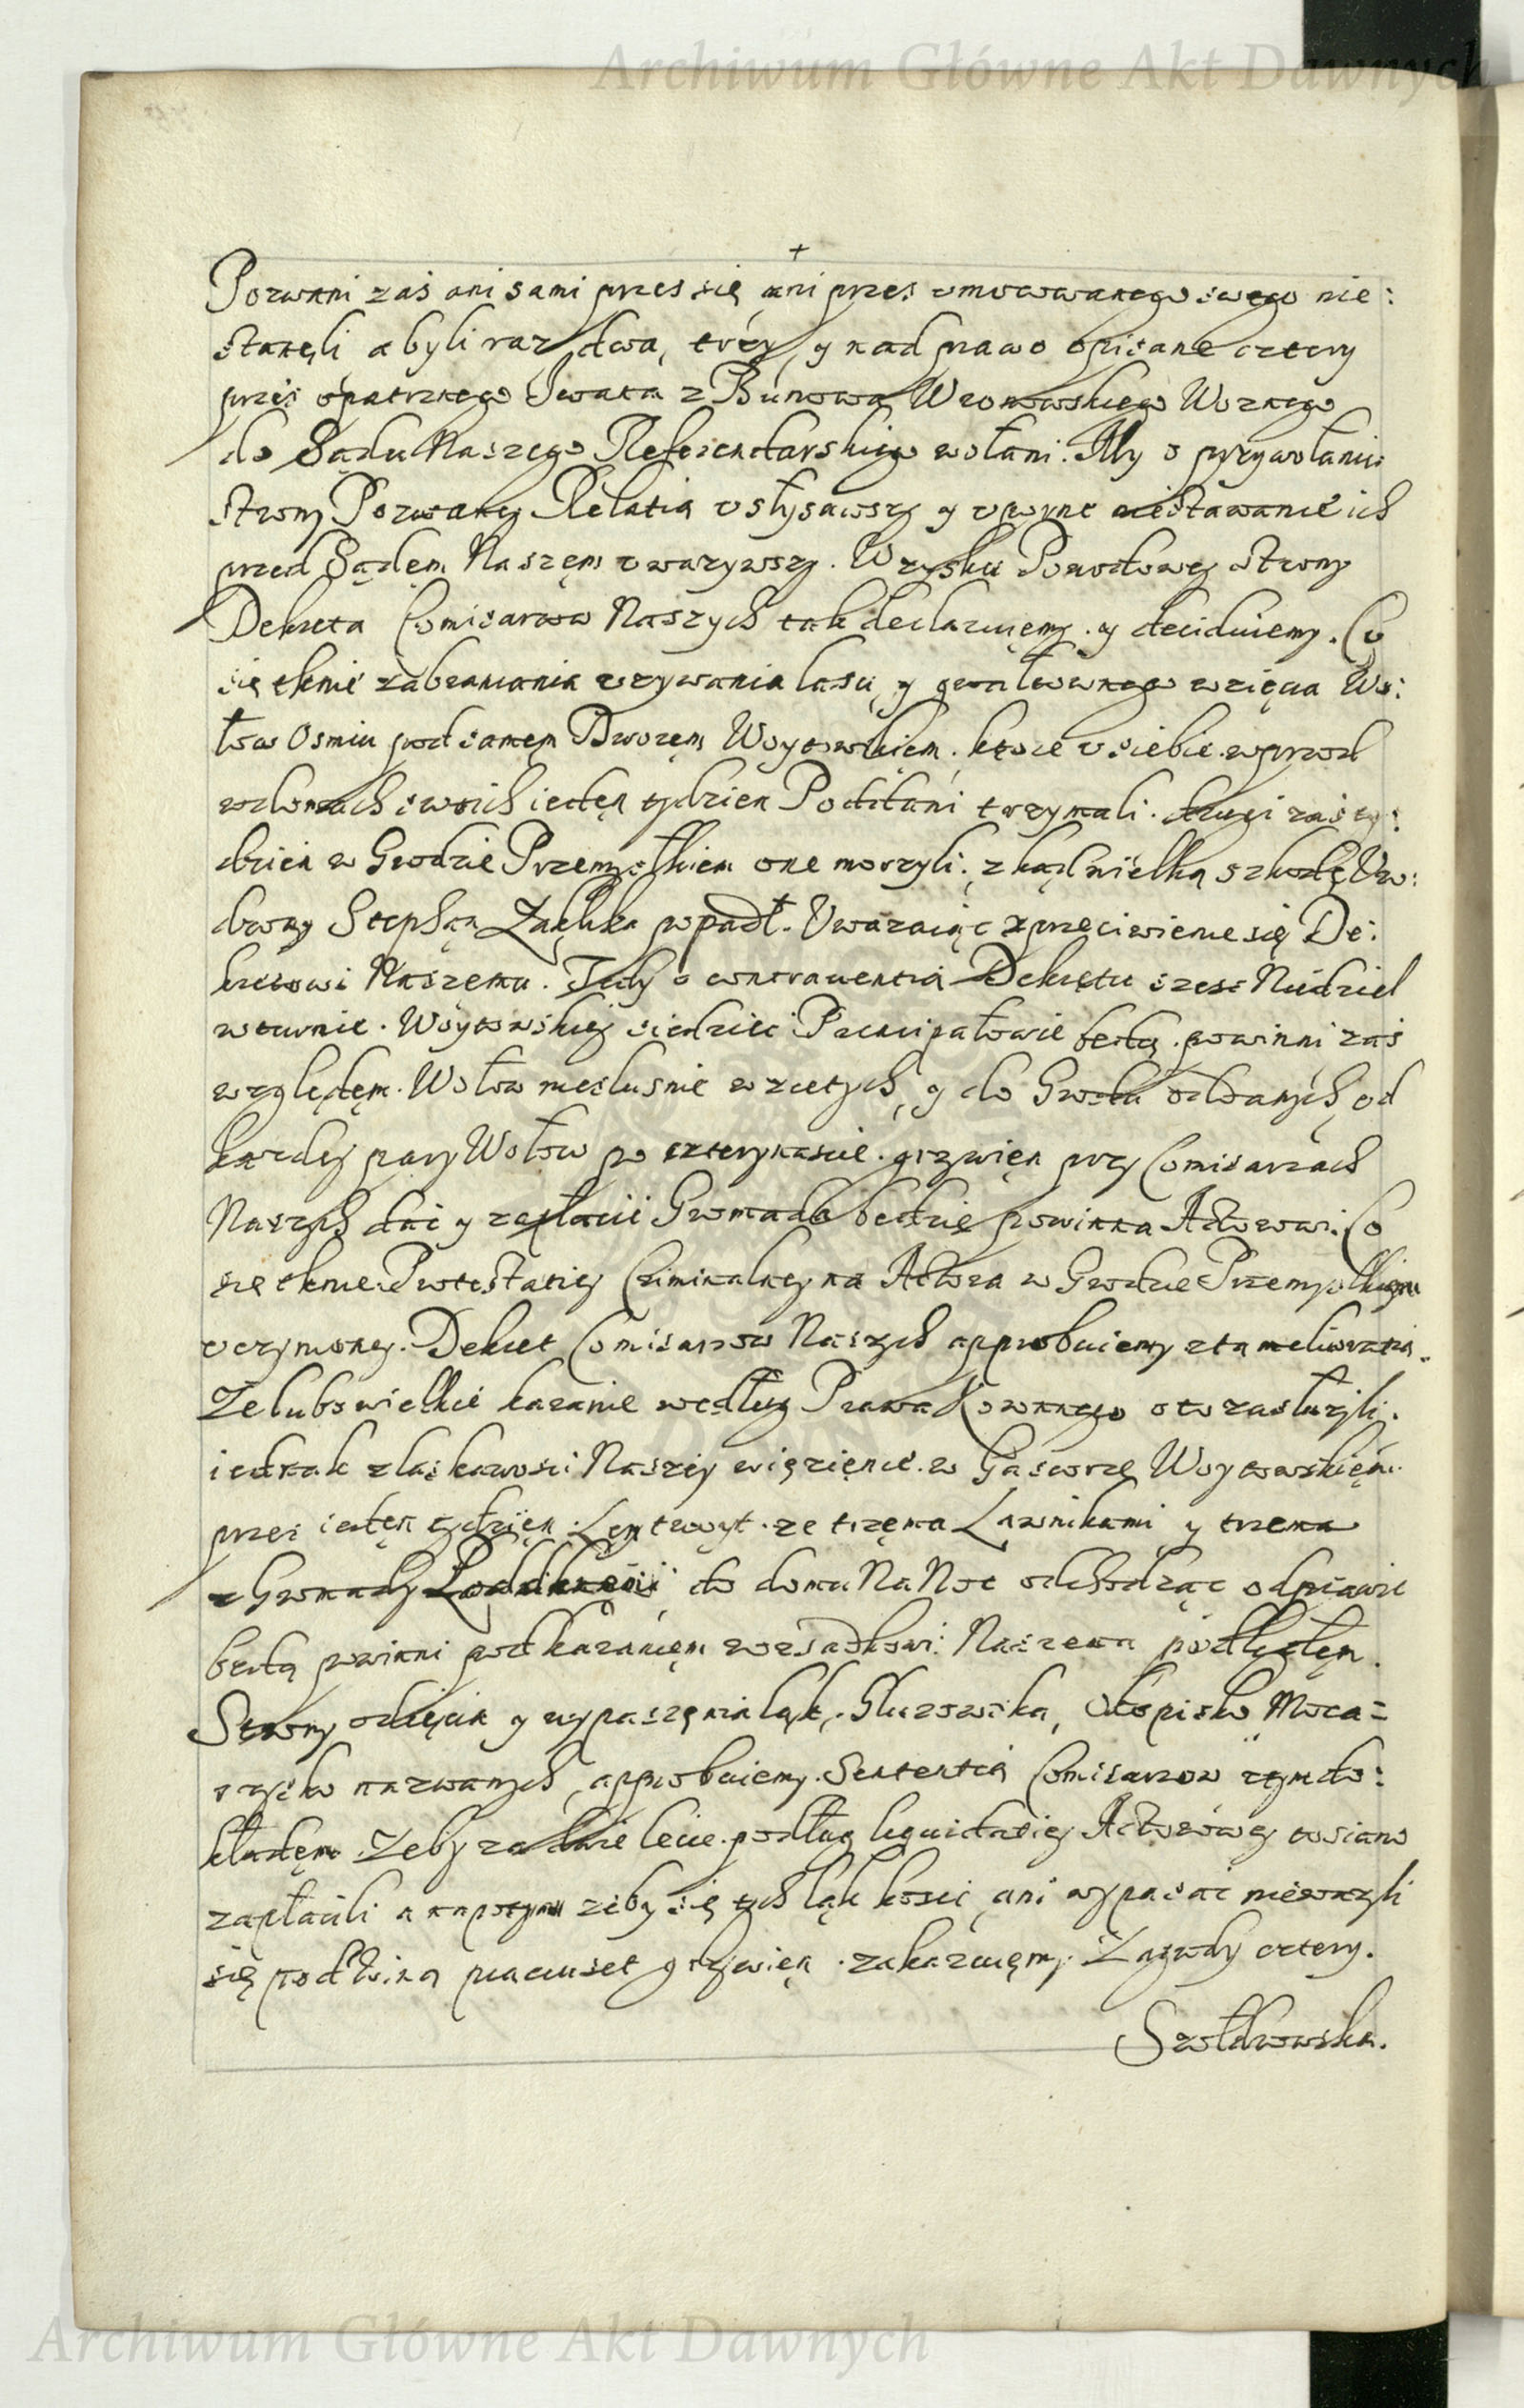 Archiwum Główne Akt Dawnych
Pozwani zaś ani sami przes się ani przes umocowanego swego nie:
stanęli a byli raz, dwa, trzy, y nad prawo opisane cztery
przes opatrznego Iwana z Bunowa Wronowskiego Woznego
do Sądu Naszego Referendarskiego wołani. My o przywołaniu
strony Pozwaney Relatią usłysawszy y upurne niestawanie ich
przed Sądem Naszęm uwazywszy. Wzysku Powodowey strony
Dekreta Comisarzow Naszych tak declaruięmy y deciduiemy. Co
się tknie zabraniania uzywania lasu y gwałtownego wzięcia Wo:
łow Osmiu pod samem Dworęm Woytowskiem, ktore u siebie wprzod
w domach swoich iedęn tydzien Poddani trzymali. drugi zaś ty:
dzien w Grodzie Przemyslkiem one morzyli, zkąd wielką szkodę Uro:
dzony Stephan popadł. Uwazaiąc zprzeciwienie się De:
kretowi Naszemu. Tedy o contraventią Dekretu szesc Niedziel
w turmie Woytowskiey siedziec Principałowie będą powinni zaś
względęm Wołow niesłusnie wzietych, y do Grodu oddanych, od
kazdey pary Wołow po czternascie grzywien przy Comisarzach
Naszych dac y zapłacic Gromada bedzie powinna Actorowi. Co
się tknie Protestatiey Criminalney na Actora w Grodzie Przemyslkiem
uczynioney. Dekret Comisarzow Naszych approbuiemy z tą melioratią.
Ze lubo wielkie karanie według Prawa o to zasłuzyli.
iednak z łaskawosci Naszey więzięnie w Gąsiorze Woytowskięm
przez iedęn tydzięn Lęntwoyt ze trzęma Ławnikami y trzema
z Gromady do domu Na Noc odchodząc odprawic
będą powinni pod karanięm rozsądkowi Naszemu podległęm.
Strony odięcia y wypasręnia łąk, Okopisko
nazwanych, approbuiemy Sententią Comisarzow zęm do:
kładęm. Zeby za dwie lecie podług liquidatiey Actorowey to siano
zapłacili a napotym zeby się tych łąk kosic ani wypasac niewazyli
się pod winą grzywien zakazuięmy. Zagrody cztery.
Szołdrowska.
Archiwum Główne Akt Dawnych